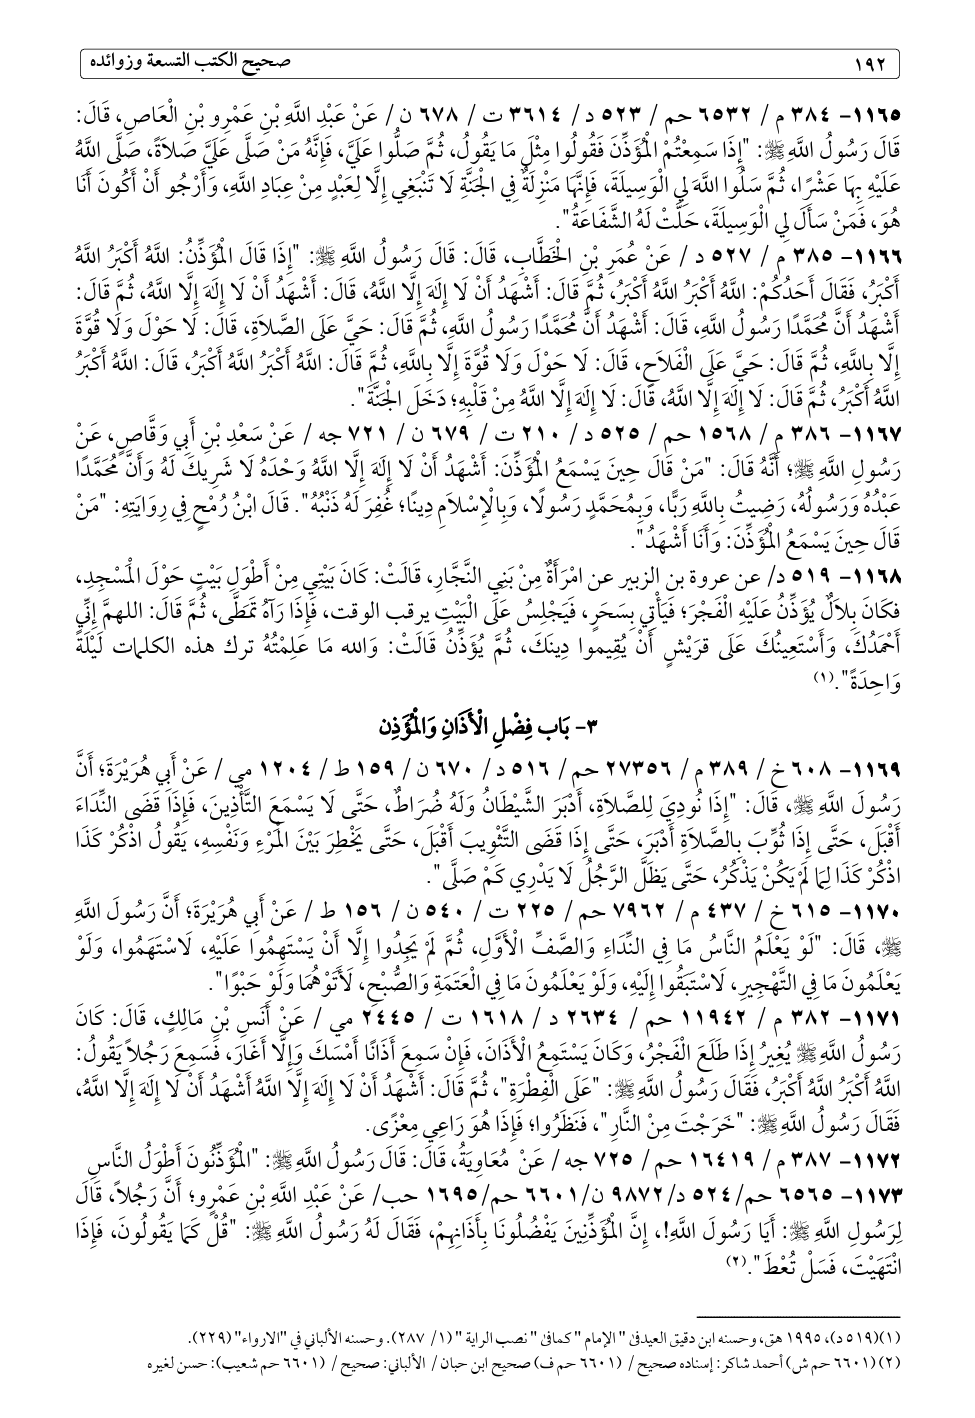 ١٩٢ صحيح الكتب التسعة وزوائده
١١٦٥- ٣٨٤ م/ ٦٥٣٢ حم/ ٥٢٣ د/ ٣٦١٤ ت/ ٦٧٨ ن/ عَنْ عَبْدِ اللَّهِ بْنِ عَمْرِو بْنِ الْعَاصِ، قَالَ:
قَالَ رَسُولُ اللَّهِ ﷺ: "إِذَا سَمِعْتُمُ الْمُؤَذِّنَ فَقُولُوا مِثْلَ مَا يَقُولُ، ثُمَّ صَلُّوا عَلَيَّ، فَإِنَّهُ مَنْ صَلَّى عَلَيَّ صَلاَةً، صَلَّى اللَّهُ
عَلَيْهِ بِهَا عَشْرًا، ثُمَّ سَلُوا اللَّهَ لِي الْوَسِيلَةَ، فَإِنَّهَا مَنْزِلَةٌ فِي الْجَنَّةِ لَا تَنْبَغِي إِلَّا لِعَبْدٍ مِنْ عِبَادِ اللَّهِ، وَأَرْجُو أَنْ أَكُونَ أَنَا
هُوَ، فَمَنْ سَأَلَ لِي الْوَسِيلَةَ، حَلَّتْ لَهُ الشَّفَاعَةُ".
١١٦٦- ٣٨٥ م/ ٥٢٧ د/ عَنْ عُمَرَ بْنِ الْخَطَّابِ، قَالَ: قَالَ رَسُولُ اللَّهِ ﷺ: "إِذَا قَالَ الْمُؤَذِّنُ: اللَّهُ أَكْبَرُ اللَّهُ
أَكْبَرُ، فَقَالَ أَحَدُكُمْ: اللَّهُ أَكْبَرُ اللَّهُ أَكْبَرُ، ثُمَّ قَالَ: أَشْهَدُ أَنْ لَا إِلَهَ إِلَّا اللَّهُ، قَالَ: أَشْهَدُ أَنْ لَا إِلَهَ إِلَّا اللَّهُ، ثُمَّ قَالَ:
أَشْهَدُ أَنَّ مُحَمَّدًا رَسُولُ اللَّهِ، قَالَ: أَشْهَدُ أَنَّ مُحَمَّدًا رَسُولُ اللَّهِ، ثُمَّ قَالَ: حَيَّ عَلَى الصَّلاَةِ، قَالَ: لَا حَوْلَ وَلَا قُوَّةَ
إِلَّا بِاللَّهِ، ثُمَّ قَالَ: حَيَّ عَلَى الْفَلاَحِ، قَالَ: لَا حَوْلَ وَلَا قُوَّةَ إِلَّا بِاللَّهِ، ثُمَّ قَالَ: اللَّهُ أَكْبَرُ اللَّهُ أَكْبَرُ، قَالَ: اللَّهُ أَكْبَرُ
اللَّهُ أَكْبَرُ، ثُمَّ قَالَ: لَا إِلَهَ إِلَّا اللَّهُ، قَالَ: لَا إِلَهَ إِلَّا اللَّهُ مِنْ قَلْبِهِ؛ دَخَلَ الْجَنَّةَ".
١١٦٧- ٣٨٦ م/ ١٥٦٨ حم/ ٥٢٥ د/ ٢١٠ ت/ ٦٧٩ ن/ ٧٢١ جه/ عَنْ سَعْدِ بْنِ أَبِي وَقَّاصٍ، عَنْ
رَسُولِ اللَّهِ ﷺ؛ أَنَّهُ قَالَ: "مَنْ قَالَ حِينَ يَسْمَعُ الْمُؤَذِّنَ: أَشْهَدُ أَنْ لَا إِلَهَ إِلَّا اللَّهُ وَحْدَهُ لَا شَرِيكَ لَهُ وَأَنَّ مُحَمَّدًا
عَبْدُهُ وَرَسُولُهُ، رَضِيتُ بِاللَّهِ رَبًّا، وَبِمُحَمَّدٍ رَسُولًا، وَبِالْإِسْلَامِ دِينًا؛ غُفِرَ لَهُ ذَنْبُهُ". قَالَ ابْنُ رُمْحٍ فِي رِوَايَتِهِ: "مَنْ
قَالَ حِينَ يَسْمَعُ الْمُؤَذِّنَ: وَأَنَا أَشْهَدُ".
١١٦٨- ٥١٩ د/ عن عروة بن الزبير عن امْرَأَةٌ مِنْ بَنِي النَّجَّارِ، قَالَتْ: كَانَ بَيْتِي مِنْ أَطْوَلِ بَيْتٍ حَوْلَ الْمَسْجِدِ،
فكَانَ بِلاَلٌ يُؤَذِّنُ عَلَيْهِ الْفَجْرَ؛ فَيَأْتِي بِسَحَرٍ، فَيَجْلِسُ عَلَى الْبَيْتِ يرقب الوقت، فَإِذَا رَآهُ تَمَطَّى، ثُمَّ قَالَ: اللهمَّ إِنِّي
أَحْمَدُكَ، وَأَسْتَعِينُكَ عَلَى قرَيْشٍ أَنْ يُقِيموا دِينَكَ، ثُمَّ يُؤَذِّنُ قَالَتْ: وَالله مَا عَلِمْتُهُ ترك هذه الكلمات لَيْلَةً
وَاحِدَةً".(١)
٣- بَاب فِضْلِ الْأَذَانِ وَالْمُؤَذِن
١١٦٩- ٦٠٨ خ/ ٣٨٩ م/ ٢٧٣٥٦ حم/ ٥١٦ د/ ٦٧٠ ن/ ١٥٩ ط/ ١٢٠٤ مي/ عَنْ أَبِي هُرَيْرَةَ؛ أَنَّ
رَسُولَ اللَّهِ ﷺ، قَالَ: "إِذَا نُودِيَ لِلصَّلاَةِ، أَدْبَرَ الشَّيْطَانُ وَلَهُ ضُرَاطٌ، حَتَّى لَا يَسْمَعَ التَّأْذِينَ، فَإِذَا قَضَى النِّدَاءَ
أَقْبَلَ، حَتَّى إِذَا ثُوِّبَ بِالصَّلاَةِ أَدْبَرَ، حَتَّى إِذَا قَضَى التَّثْوِيبَ أَقْبَلَ، حَتَّى يَخْطِرَ بَيْنَ الْمَرْءِ وَنَفْسِهِ، يَقُولُ اذْكُرْ كَذَا
اذْكُرْ كَذَا لِمَا لَمْ يَكُنْ يَذْكُرُ، حَتَّى يَظَلَّ الرَّجُلُ لَا يَدْرِي كَمْ صَلَّى".
١١٧٠- ٦١٥ خ/ ٤٣٧ م/ ٧٩٦٢ حم/ ٢٢٥ ت/ ٥٤٠ ن/ ١٥٦ ط/ عَنْ أَبِي هُرَيْرَةَ؛ أَنَّ رَسُولَ اللَّهِ
ﷺ، قَالَ: "لَوْ يَعْلَمُ النَّاسُ مَا فِي النِّدَاءِ وَالصَّفِّ الْأَوَّلِ، ثُمَّ لَمْ يَجِدُوا إِلَّا أَنْ يَسْتَهِمُوا عَلَيْهِ، لَاسْتَهَمُوا، وَلَوْ
يَعْلَمُونَ مَا فِي التَّهْجِيرِ، لَاسْتَبَقُوا إِلَيْهِ، وَلَوْ يَعْلَمُونَ مَا فِي الْعَتَمَةِ وَالصُّبْحِ، لَأَتَوْهُمَا وَلَوْ حَبْوًا".
١١٧١- ٣٨٢ م/ ١١٩٤٢ حم/ ٢٦٣٤ د/ ١٦١٨ ت/ ٢٤٤٥ مي/ عَنْ أَنَسِ بْنِ مَالِكٍ، قَالَ: كَانَ
رَسُولُ اللَّهِ ﷺ يُغِيرُ إِذَا طَلَعَ الْفَجْرُ، وَكَانَ يَسْتَمِعُ الْأَذَانَ، فَإِنْ سَمِعَ أَذَانًا أَمْسَكَ وَإِلَّا أَغَارَ، فَسَمِعَ رَجُلاً يَقُولُ:
اللَّهُ أَكْبَرُ اللَّهُ أَكْبَرُ، فَقَالَ رَسُولُ اللَّهِ ﷺ: "عَلَى الْفِطْرَةِ"، ثُمَّ قَالَ: أَشْهَدُ أَنْ لَا إِلَهَ إِلَّا اللَّهُ أَشْهَدُ أَنْ لَا إِلَهَ إِلَّا اللَّهُ،
فَقَالَ رَسُولُ اللَّهِ ﷺ: "خَرَجْتَ مِنْ النَّارِ"، فَنَظَرُوا؛ فَإِذَا هُوَ رَاعِي مِعْزًى.
١١٧٢- ٣٨٧ م/ ١٦٤١٩ حم/ ٧٢٥ جه/ عَنْ مُعَاوِيَةُ، قَالَ: قَالَ رَسُولُ اللَّهِ ﷺ: "الْمُؤَذِّنُونَ أَطْوَلُ النَّاسِ
١١٧٣- ٦٥٦٥ حم/ ٥٢٤ د/ ٩٨٧٢ ن/ ٦٦٠١ حم/ ١٦٩٥ حب/ عَنْ عَبْدِ اللَّهِ بْنِ عَمْرٍو؛ أَنَّ رَجُلاً، قَالَ
لِرَسُولِ اللَّهِ ﷺ: أَيَا رَسُولَ اللَّهِ!، إِنَّ الْمُؤَذِّنِينَ يَفْضُلُونَا بِأَذَانِهِمْ، فَقَالَ لَهُ رَسُولُ اللَّهِ ﷺ: "قُلْ كَمَا يَقُولُونَ، فَإِذَا
انْتَهَيْتَ، فَسَلْ تُعْطَ".(٢)
(١)(٥١٩ د)، ١٩٩٥ هق، وحسنه ابن دقيق العيدفى "الإمام" كمافى "نصب الراية "(١/ ٢٨٧). وحسنه الألباني في "الارواء" (٢٢٩).
(٢)(٦٦٠١ حم ش) أحمد شاكر: إسناده صحيح/ (٦٦٠١ حم ف) صحيح ابن حبان/ الألباني: صحيح/ (٦٦٠١ حم شعيب): حسن لغيره